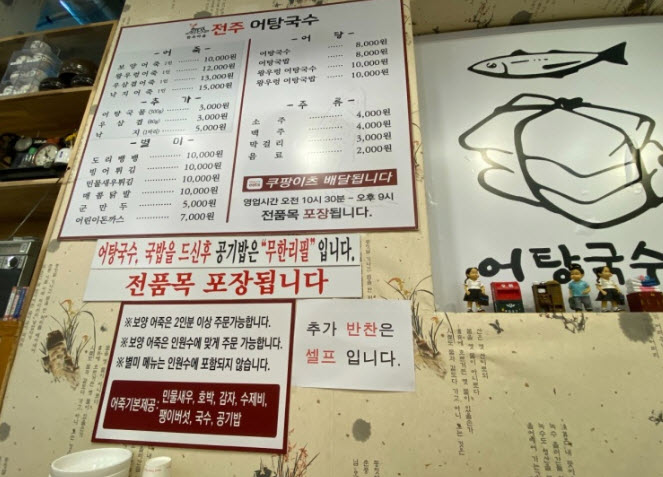 전주 어탕국수
어 죽
보양어죽 1인 10,000원
왕우렁어죽 1인 12,000원
우삼겹어죽 1인 13,000원
낙지어죽 1인 15,000원
추 가
어탕국물 (500g) 3,000원
우삼겹 (80g) 3,000원
낙 지 (1마리) 5,000원
별 미
도리뱅뱅 10,000원
빙어튀김 10,000원
민물새우튀김 10,000원
매콤닭발 10,000원
군만두 5,000원
어린이돈까스 7,000원
어 탕
어탕국수 8,000원
어탕국밥 8,000원
왕우렁 어탕국수 10,000원
왕우렁 어탕국밥 10,000원
주 류
소주 4,000원
맥주 4,000원
막걸리 3,000원
음료 2,000원
쿠팡이츠 배달됩니다
영업시간 오전 10시 30분~오후 9시
전품목 포장됩니다.
어탕국수
어탕국수, 국밥을 드신후 공기밥은 "무한리필" 입니다.
전품목 포장됩니다
※ 보양 어죽은 2인분 이상 주문가능합니다.
※ 보양 어죽은 인원수에 맞게 주문 가능합니다.
※ 별미 메뉴는 인원수에 포함되지 않습니다.
어죽기본제공: 민물새우, 호박, 감자, 수제비,
팽이버섯, 국수, 공기밥
추가 반찬은
셀프 입니다.